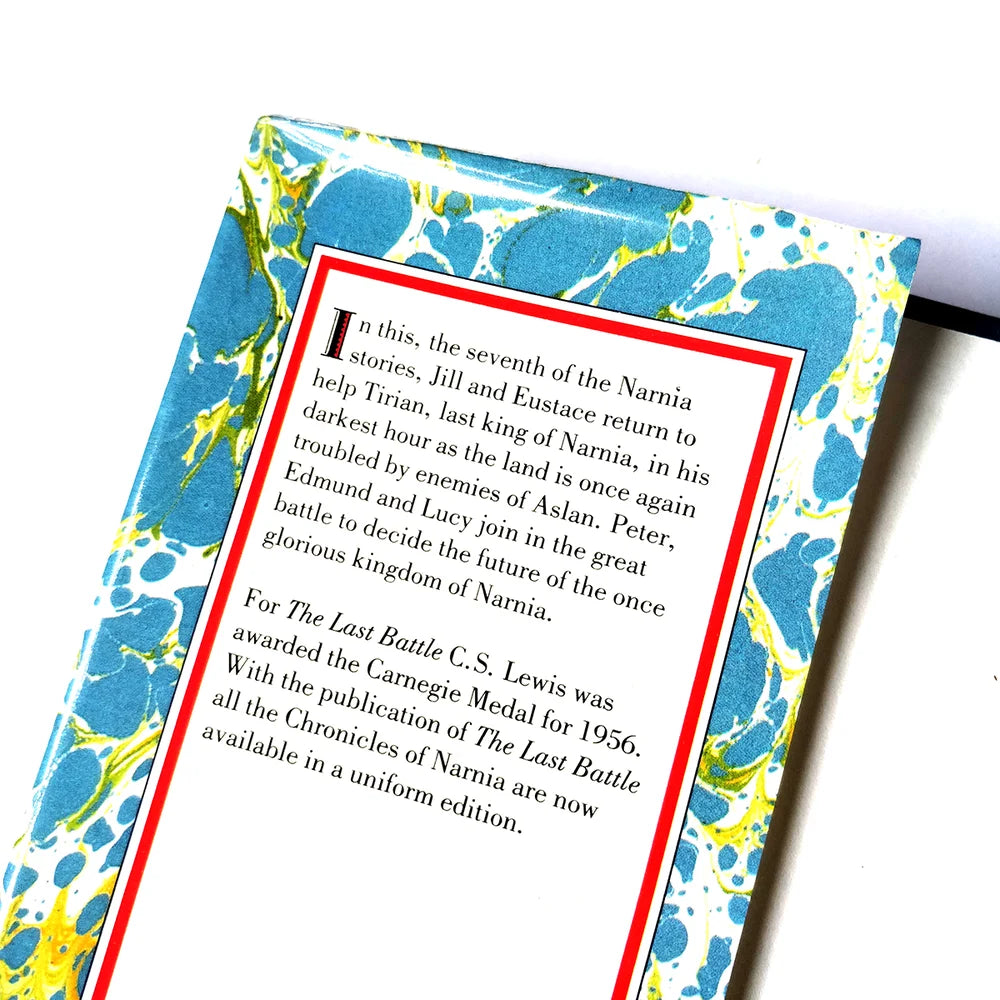 In this, the seventh of the Narnia
stories, Jill and Eustace return to
help Tirian, last king of Narnia, in his
darkest hour as the land is once again
troubled by enemies of Aslan. Peter,
Edmund and Lucy join in the great
battle to decide the future of the once
glorious kingdom of Narnia.
For The Last Battle C.S. Lewis was
awarded the Carnegie Medal for 1956.
With the publication of The Last Battle
all the Chronicles of Narnia are now
available in a uniform edition.